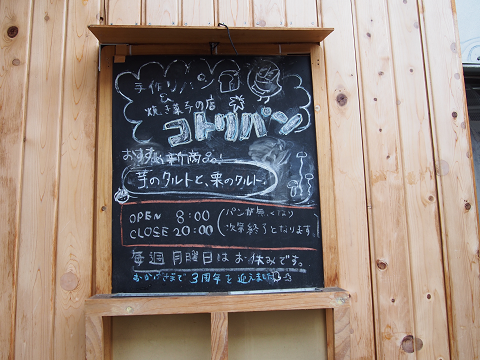 手作りパン
&
焼き菓子の店
コトリパン
おすすめ新商品!
芋のタルトと、栗のタルト。
OPEN 8:00
CLOSE 20:00
(パンが無くなり
次第終了となります。)
毎週 月曜日はお休みです。
おかげさまで 3周年を迎えました